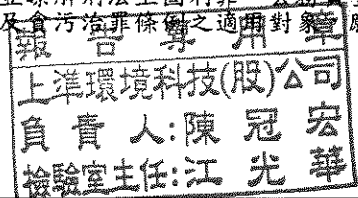 及貪污治罪條例之適用對象
報告專用章
上準環境科技(股)公司
負責人:陳冠宏
檢驗室主任:江光華